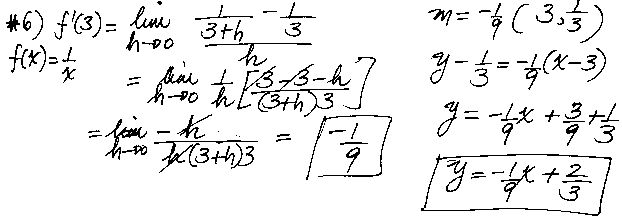 #6) f'(3) = lim h→0 (1/(3+h) - 1/3)/h
f(x) = 1/x
= lim h→0 1/h [(3-3-h)/((3+h)3)]
= lim h→0 -h/(h(3+h)3) = -1/9
m = -1/9 (3, 1/3)
y - 1/3 = -1/9(x-3)
y = -1/9x + 3/9 + 1/3
y = -1/9x + 2/3